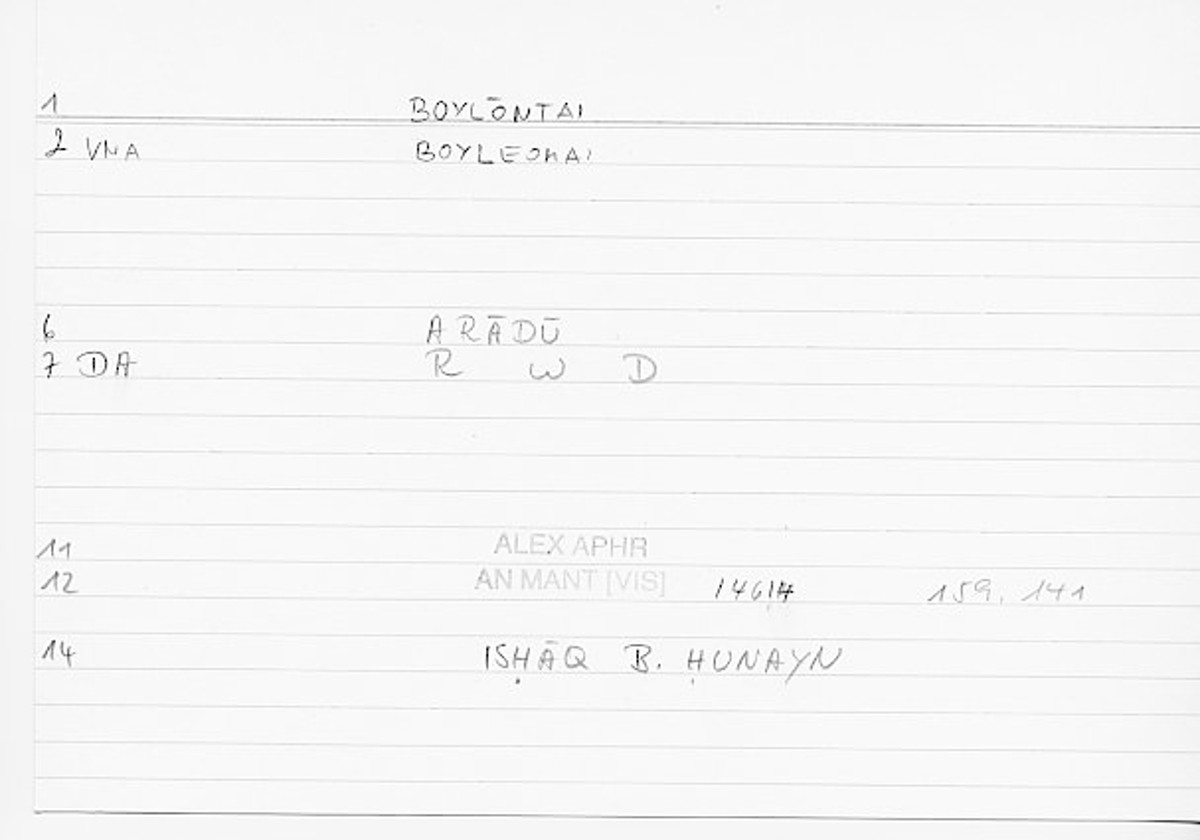 1 BOYLŌNTAI
2 VNA BOYLEOMAI
6 ARĀDŪ
7 DA R W D
11 ALEX APHR
12 AN MANT [VIS] 159, 141
14 ISḤĀQ B. ḤUNAYN